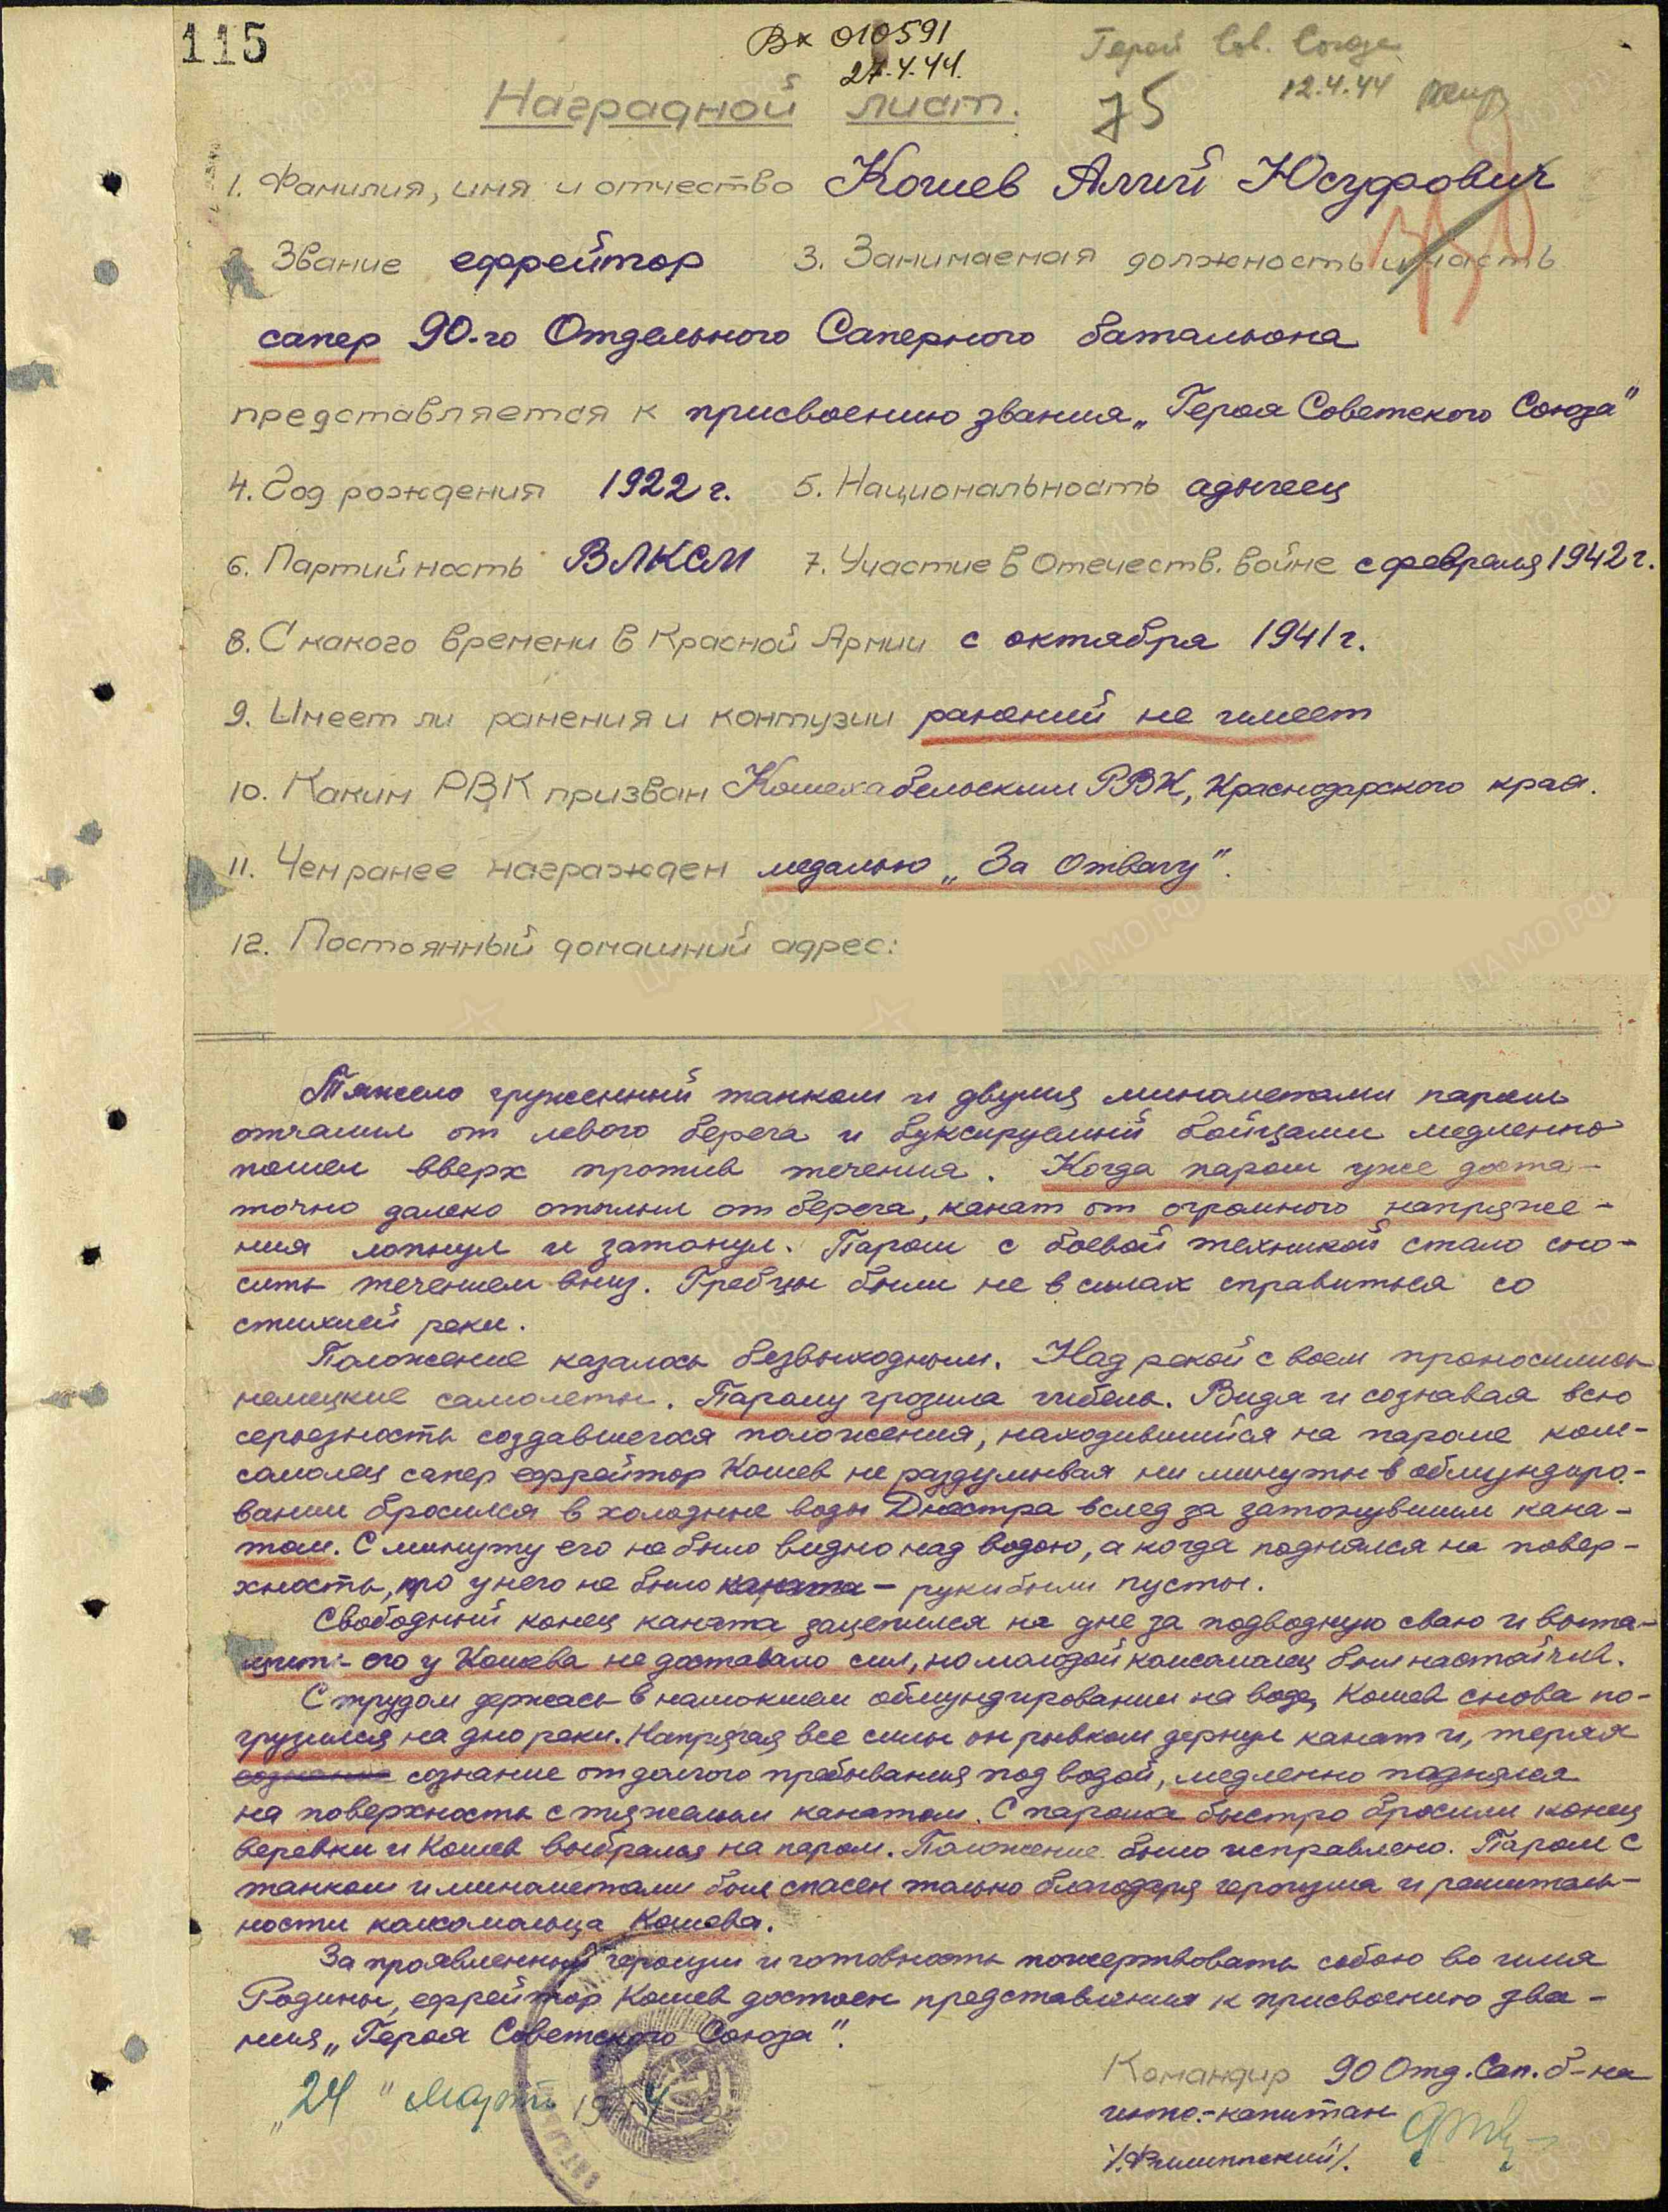 115
Вх 010591
27.4.44.
Герой Сов. Союза
12.4.44
Наградной лист.
75
1. Фамилия, имя и отчество Кошев Алий Юсуфович
2. Звание ефрейтор 3. Занимаемая должность и часть
сапер 90-го Отдельного Саперного батальона
представляется к присвоению звания „Героя Советского Союза"
4. Год рождения 1922 г. 5. Национальность адыгеец
6. Партийность ВЛКСМ 7. Участие в Отечеств. войне с февраля 1942 г.
8. С какого времени в Красной Армии с октября 1941 г.
9. Имеет ли ранения и контузии ранений не имеет
10. Каким РВК призван Кошехабельским РВК, Краснодарского края.
11. Чем ранее награжден медалью „За Отвагу".
12. Постоянный домашний адрес:
Тяжело груженный танком и двумя минометами паром
отчалил от левого берега и буксируемый бойцами медленно
пошел вверх против течения. Когда паром уже доста-
точно далеко отплыл от берега, канат от огромного напряже-
ния лопнул и затонул. Паром с боевой техникой стало сно-
сить течением вниз. Гребцы были не в силах справиться со
стихией реки.
Положение казалось безвыходным. Над рекой с воем проносились
немецкие самолеты. Парому грозила гибель. Видя и сознавая всю
серьезность создавшегося положения, находившийся на пароме ком-
сомолец сапер ефрейтор Кошев не раздумывая ни минуты в обмундиро-
вании бросился в холодные воды Днестра вслед за затонувшим кана-
том. С минуту его не было видно над водою, а когда поднялся на повер-
хность, то у него не было каната - руки были пусты.
Свободный конец каната зацепился на дне за подводную сваю и выта-
щить его у Кошева не доставало сил, но молодой комсомолец был настойчив.
С трудом держась в намокшем обмундировании на воде, Кошев снова по-
грузился на дно реки. Напрягая все силы он рывком дернул канат и, теряя
сознание сознание от долгого пребывания под водой, медленно поднялся
на поверхность с тяжелым канатом. С парома быстро бросили конец
веревки и Кошев выбрался на паром. Положение было исправлено. Паром с
танком и минометами был спасен только благодаря героизма и решитель-
ности комсомольца Кошева.
За проявленный героизм и готовность пожертвовать собою во имя
Родины, ефрейтор Кошев достоен представления к присвоению зва-
ния „Героя Советского Союза".
„24" Марта 1944
Командир 90 Отд. Сап. б-на
инж.-капитан
/Филиппский/.